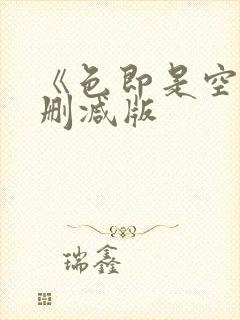 《色即是空
删减版
瑞鑫